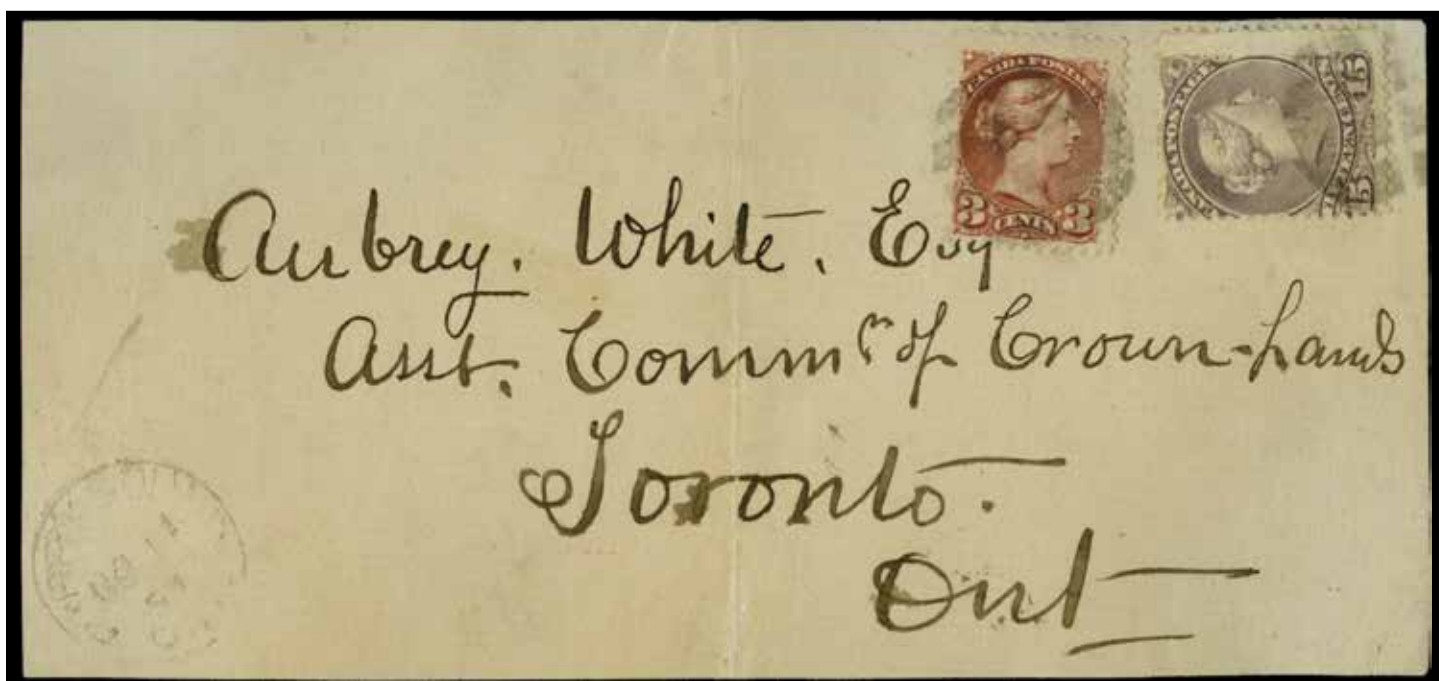 CANADA POSTAGE
3 CENTS 3
CANADA POSTAGE
15 15
Aubrey. White. Esq
Asst. Commr of Crown-Lands
Toronto.
Ont